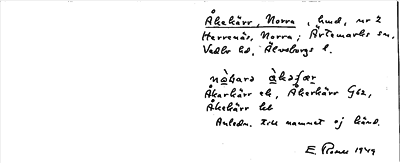 Åkekärr, Norra, hmd, nr 2
Herrenäs, Norra; Ärtemarks sn,
Vedbo hd, Älvsborgs l.
nòharə àkəfær
Åkarkärr ek, Åkerkärr G62,
Åkekärr bl
Anledn. till namnet ej känd.
E. 1949